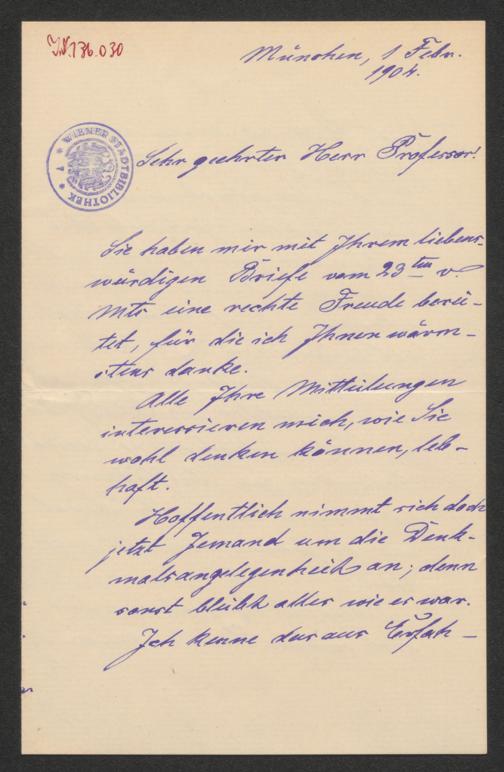 J.N.136.030
München, 1 Febr.
1904.
WIENER STADTBIBLIOTHEK
Sehr geehrter Herr Professor!
Sie haben mir mit Ihrem liebens-
würdigen Briefe vom 23ten v.
Mts eine rechte Freude berei-
tet, für die ich Ihnen wärm-
stens danke.
Alle Ihre Mitteilungen
interessieren mich, wie Sie
wohl denken können, leb-
haft.
Hoffentlich nimmt sich doch
jetzt Jemand um die Denk-
malsangelegenheit an; denn
sonst bleibt alles wie es war.
Ich kenne das aus Erfah-